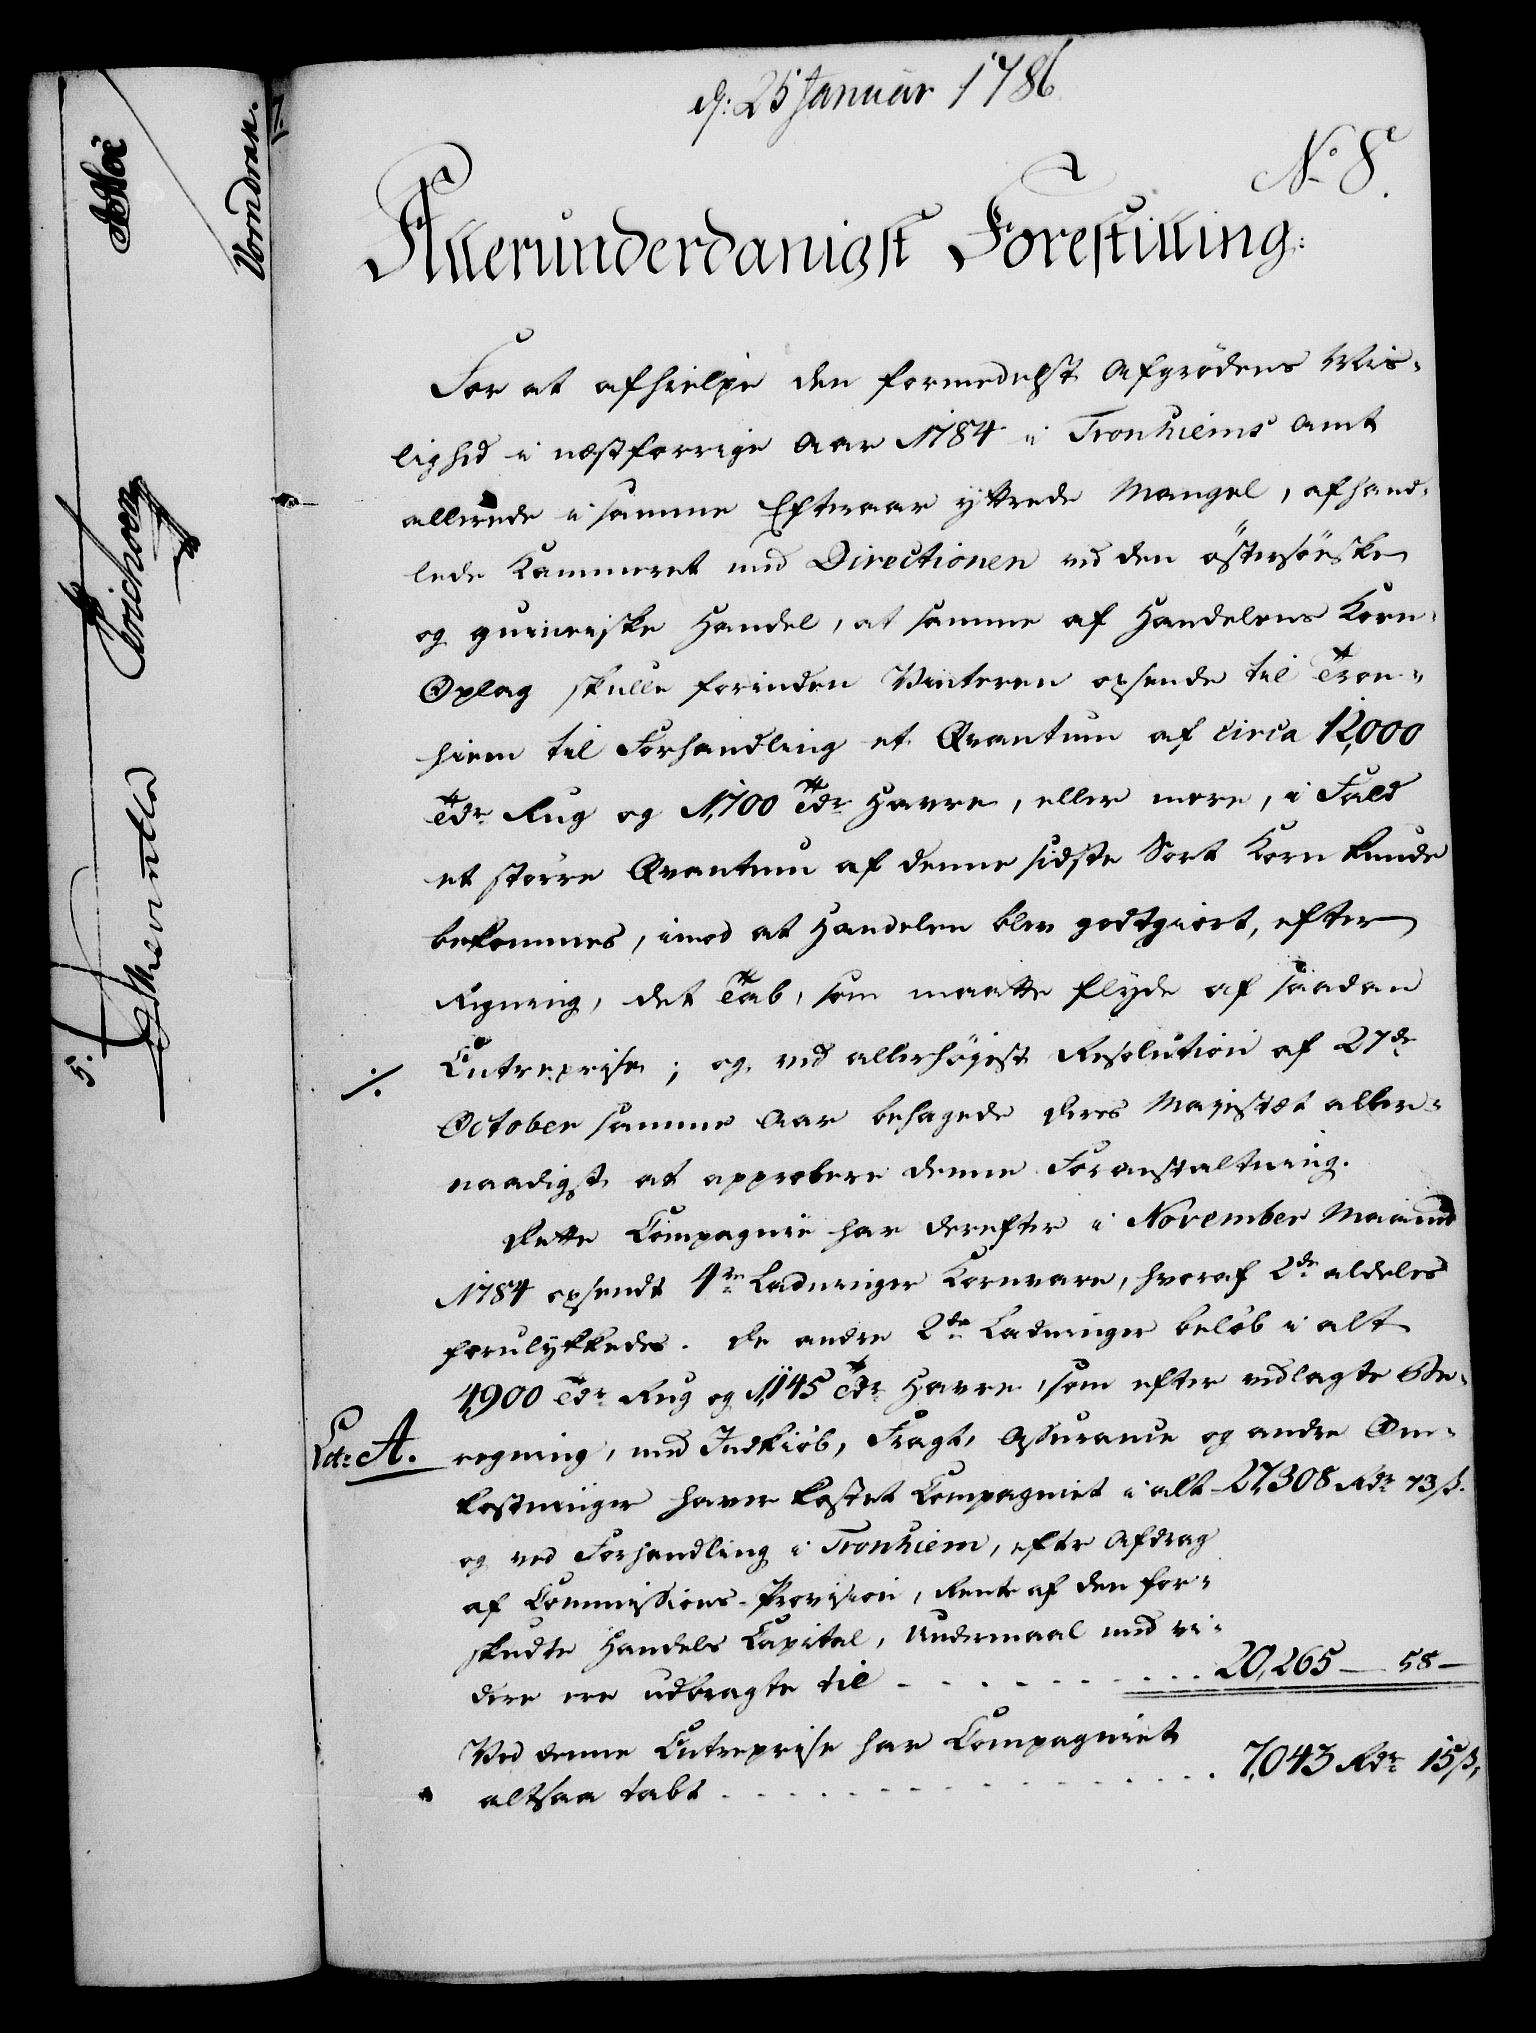 d: 25 Januar 1786
No 8.
Allerunderdanigst Forestilling:
For at afhielpe den formedelst Afgrødens Mis-
lighed i næstforrige Aar 1784 i Tronhiems Amt
allerede i samme Efteraar yttrede Mangel, afhand-
lede Kammeret med Directionen ved den østersøiske
og guineiske Handel, at samme af Handelens Korn-
Oplag skulle forinden Vinteren opsende til Tron-
hiem til Forhandling et Qvantum af circa 12,000
Tdr Rug og 1,700 Tdr Havre, eller mere, i Fald
et større Qvantum af denne sidste Sort Korn kunde
bekommes, imod at Handelen blev godtgiort, efter
Regning, det Tab, som maatte flyde af saadan
Entreprise; og ved allerhøigst Resolution af 27de
October samme Aar behagede Deres Majestæt aller-
naadigst at approbere denne Foranstaltning.
Dette Compagnie har derefter i November Maaned
1784 opsendt 4re Ladninger Kornvare, hvoraf 2de aldeles
forulykkedes. De andre 2de Ladninger beløb i alt
4,900 Tdr Rug og 1,145 Tdr Havre, som efter vedlagte Be-
Ltr: A. regning, med Indkiøb, Fragt, Assurance og andre Om-
kostninger haver kostet Compagniet i alt 27,308 Rdr 73 ß.
og ved Forhandling i Tronhiem, efter Afdrag
af Commissions-Provision, Rente af den for-
skudte Handels Capital, Undermaal med vi-
dere ere udbragte til - - - - - - - - 20,265 — 58 —
Ved denne Entreprise har Compagniet
altsaa tabt - - - - - - - - - - 7,043 Rdr 15 ß,
5.
Erichsen
Vorndran.